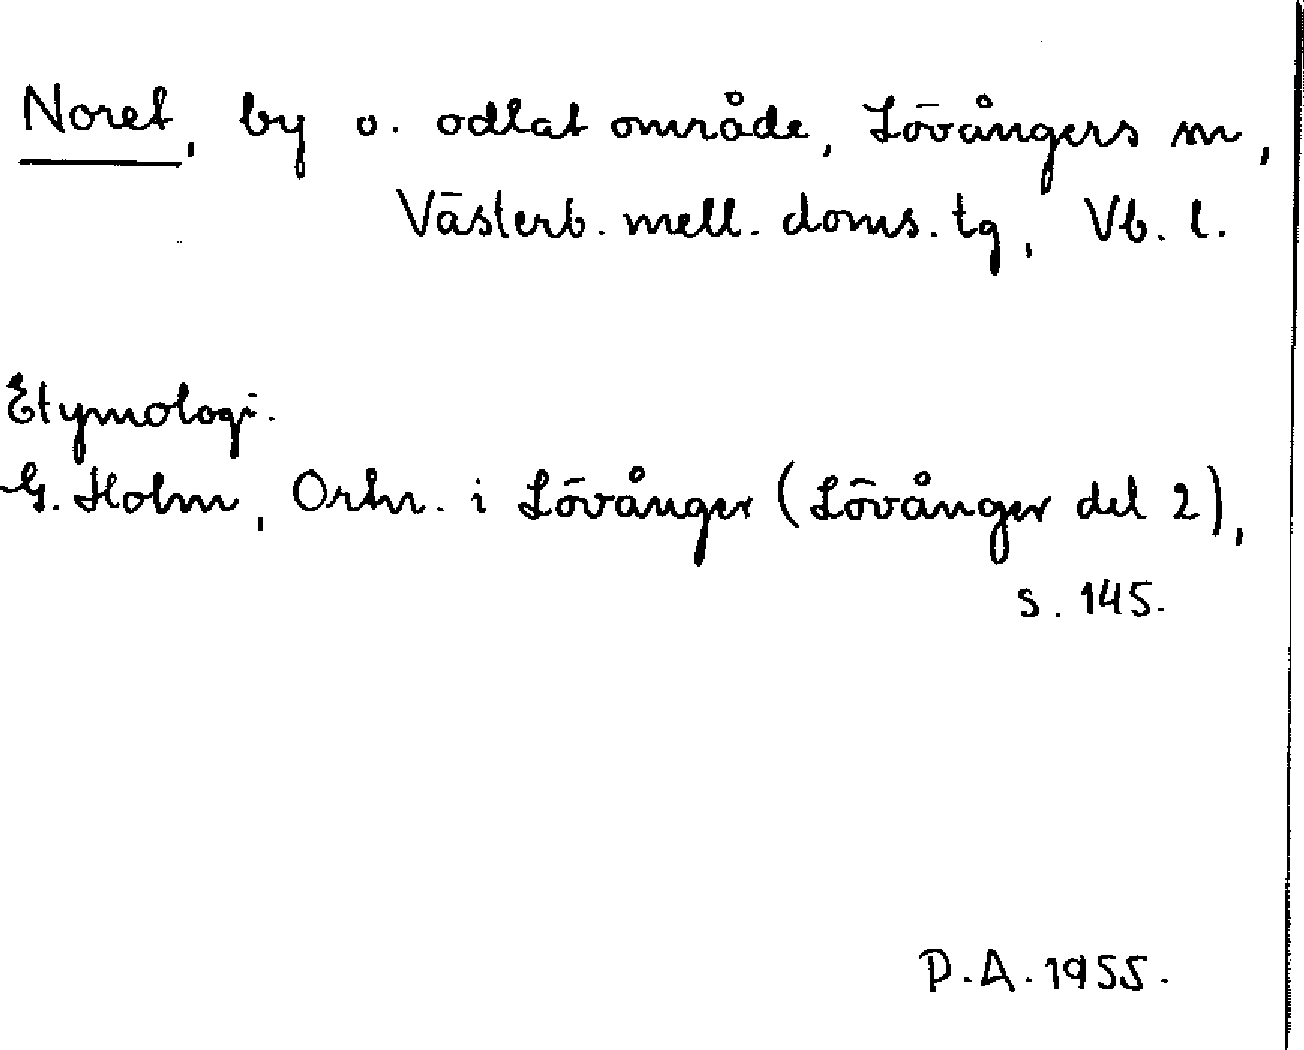 Noret, by o. odlat område, Lövångers sn,
Västerb. mell. doms. tg, Vb. l.
Etymologi.
G. Holm, Ortn. i Lövånger (Lövånger del 2),
s. 145.
P.A. 1955.